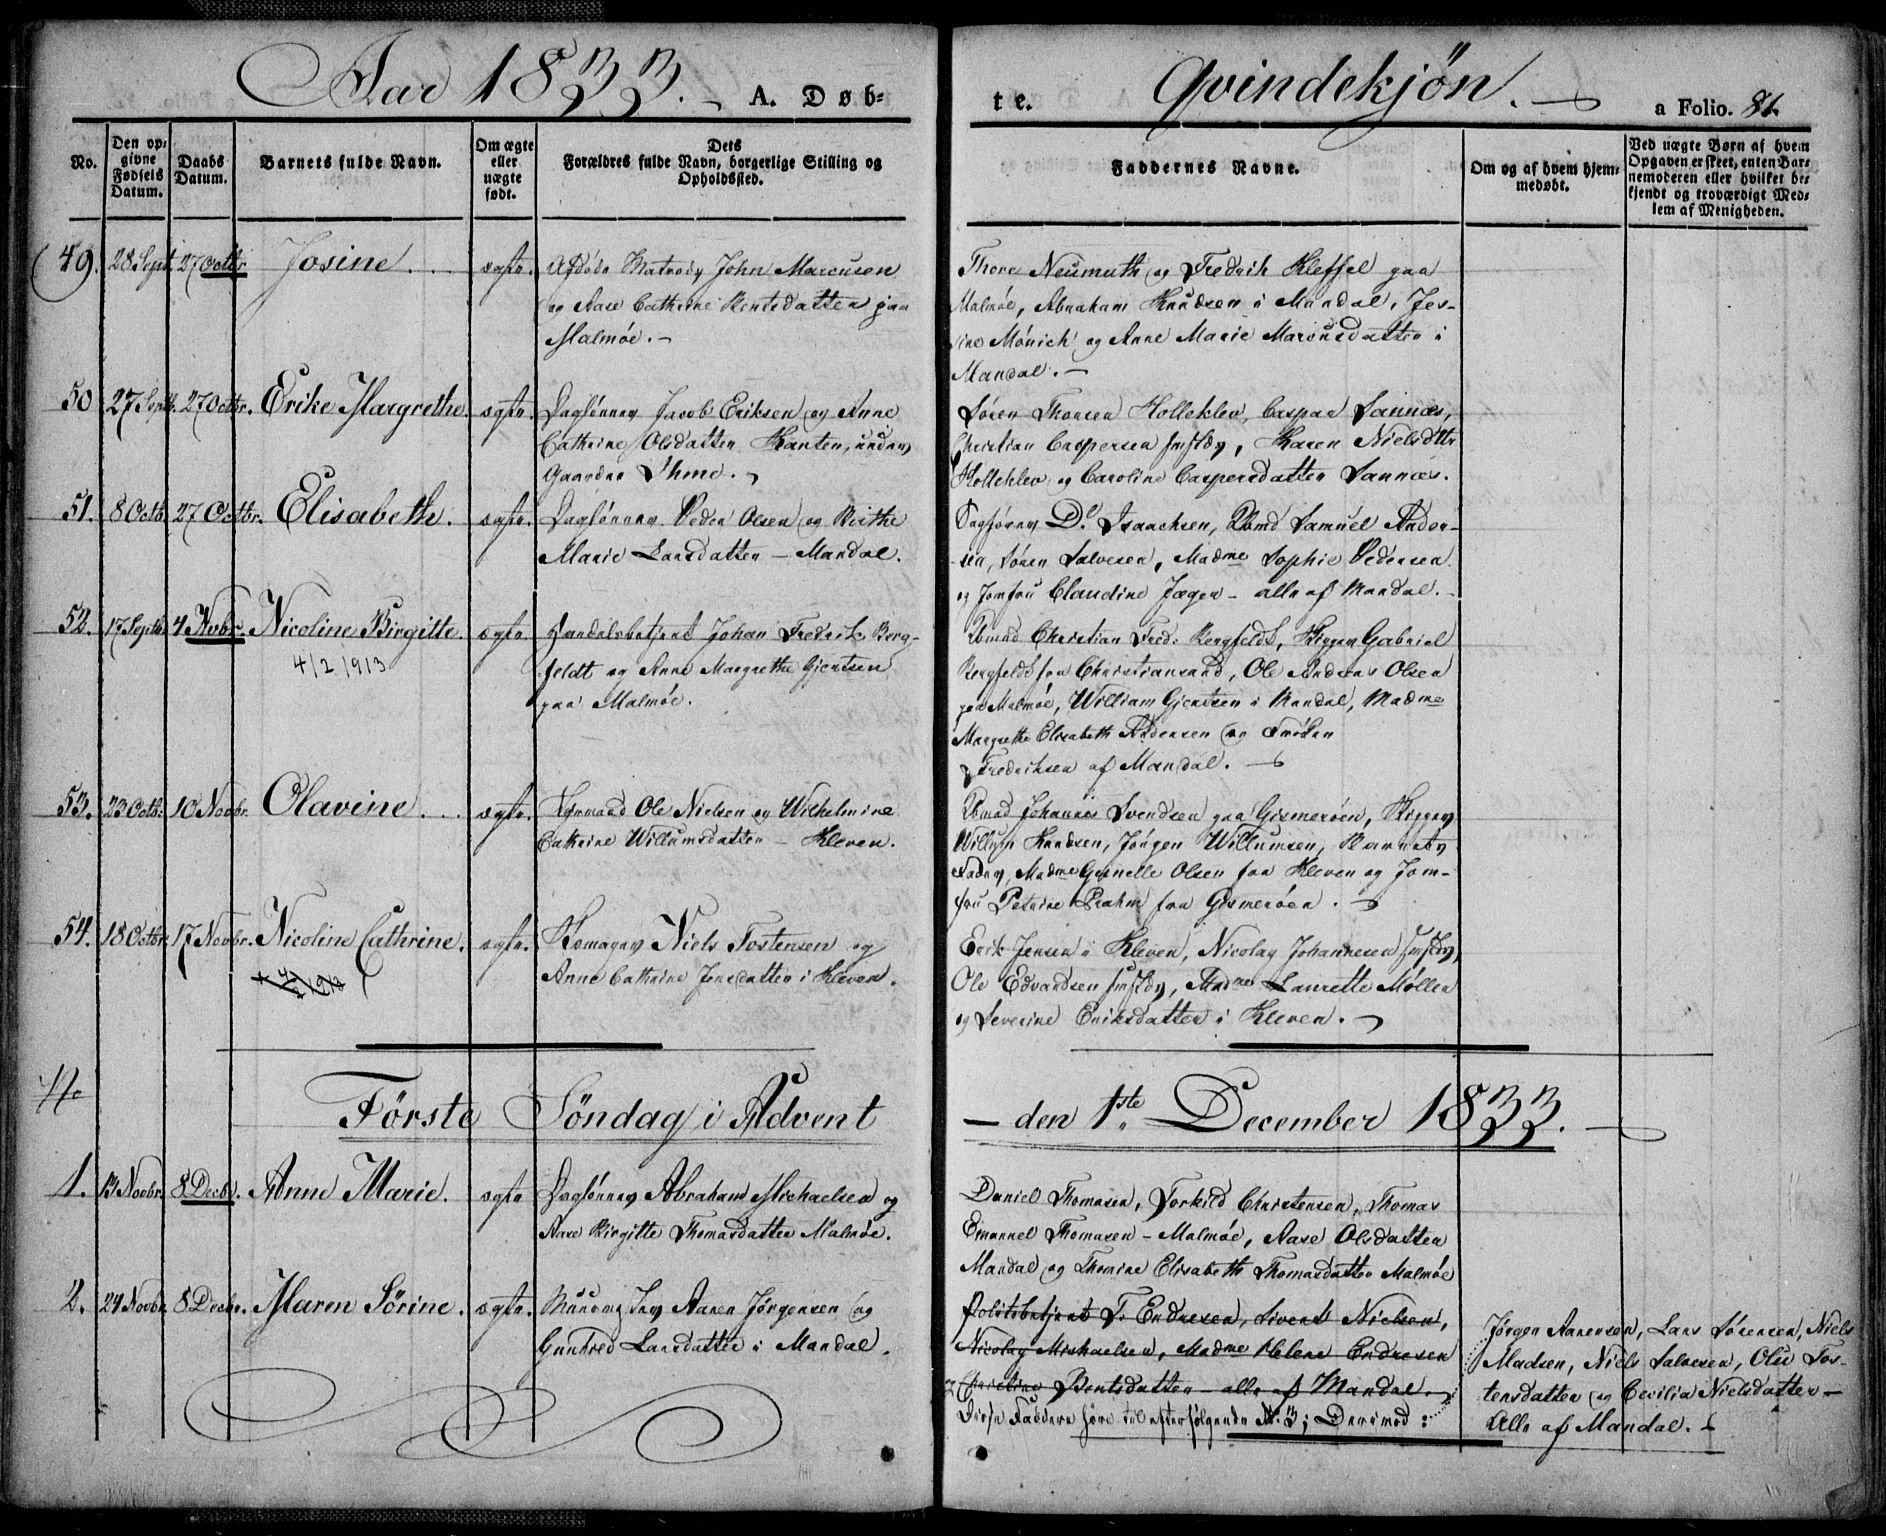 Aar 1833. A. Døb-
te. Qvindekjøn. a Folio. 86.
No.
Den op-
givne
Fødsels
Datum.
Daabs
Datum.
Barnets fulde Navn.
Om ægte
eller
uægte
født.
Dets
Forældres fulde Navn, borgerlige Stilling og
Opholdssted.
Faddernes Navne.
Om og af hvem hjem-
medøbt.
Ved uægte Børn af hvem
Opgaven er skeet, enten Bar-
nemoderen eller hvilket be-
kjendt og troværdigt Med-
lem af Menigheden.
49. 28 Sept. 27 Octbr. Josine. ægte.
Afdøde Matros John Marcusen
og Aase Cathrine Berntsdatter paa
Malmøe.
Thore Neumuth og Fredrich Kleffel paa
Malmøe, Abraham Knudsen i Mandal, Jes-
sine Mønich og Anne Marie Marcusdatter i
Mandal.
50 27 Septb. 27 Octbr. Erike Margrethe. ægte.
Dagløнner Jacob Eriksen og Anne
Cathrine Olsdatter Kanten, under
Gaarden Ihme.
Søren Thorsen Holleklev, Caspar Sannæs,
Christian Caspersen , Karen Nielsdttr
Holleklev og Caroline Caspersdatter Sannæs.
51. 8 Octb. 27 Octbr. Elisabeth. ægte.
Dagløнner Peder Olsen og Berthe
Marie Larsdatter - Mandal.
D. Isaachsen, Samuel Ander-
sen, Søren Salvesen, Madme Sophie Pedersen
og Jomfru Claudine Jæger - alle af Mandal.
52. 17 Septb. 4 Novbr. Nicoline Birgitte. ægte.
4/2 1913
Handelsbetjent Johan Fredrik Berg-
feldt og Anne Margrethe Gjertsen
paa Malmøe.
Christian Fred: Bergfeldt, Skipper Gabriel
Bergfeldt fra Christiansand, Ole Andreas Olsen
paa Malmøe, William Gjertsen i Mandal, Madme
Margrethe Elisabeth Andersen og Frøken
Fredrichsen af Mandal.
53. 23 Octb. 10 Novbr. Olavine. ægte.
Ole Nielsen og Wilhelmine
Cathrine Willumsdatter - Kleven.
Johannes Svendsen paa Gismerøen, Skipper
Willum Knudsen, Jørgen Willumsen, Barnets
Fader, Madme Gunelle Olsen fra Kleven og Jom-
fru Petrine Prahm fra Gismerøen.
54. 18 Octbr. 17 Novbr. Nicoline Cathrine. ægte.
Niels Tostensen og
Anne Cathrine Jensdatter i Kleven.
Erik Jensen i Kleven, Nicolay Johannesen
Ole Edvardsen , Madme Laurette Møller
og Severine Eriksdatter i Kleven.
No
Første Søndag i Advent - den 1ste December 1833.
1. 13 Novbr. 8 Decbr. Anne Marie. ægte
Dagløнner Abraham Michaelsen og
Aase Birgitte Thomasdatter Malmøe.
Daniel Thomasen, Torkild Christensen, Thomas
Emanuel Thomasen - Malmøe, Aase Olsdatter
Mandal og Thomine Elisabeth Thomasdatter Malmøe
2. 24 Novbr. 8 Decbr. Maren Sørine. ægte.
Aaren Jørgensen og
Gunhild Larsdatter i Mandal.
Politibetjent T. Endresen, Sivert Nielsen,
Nicolay Michaelsen, Madme Helene Endresen
og Christine Berntsdatter - alle af Mandal.
Disse Faddere høre til efterfølgende No. 3; Derimod:
Jørgen Aanensen, Lars Sørensen, Niels
Madsen, Niels Salvesen, Olu Tos-
tensdatter og Cecilia Nielsdatter -
Alle af Mandal.